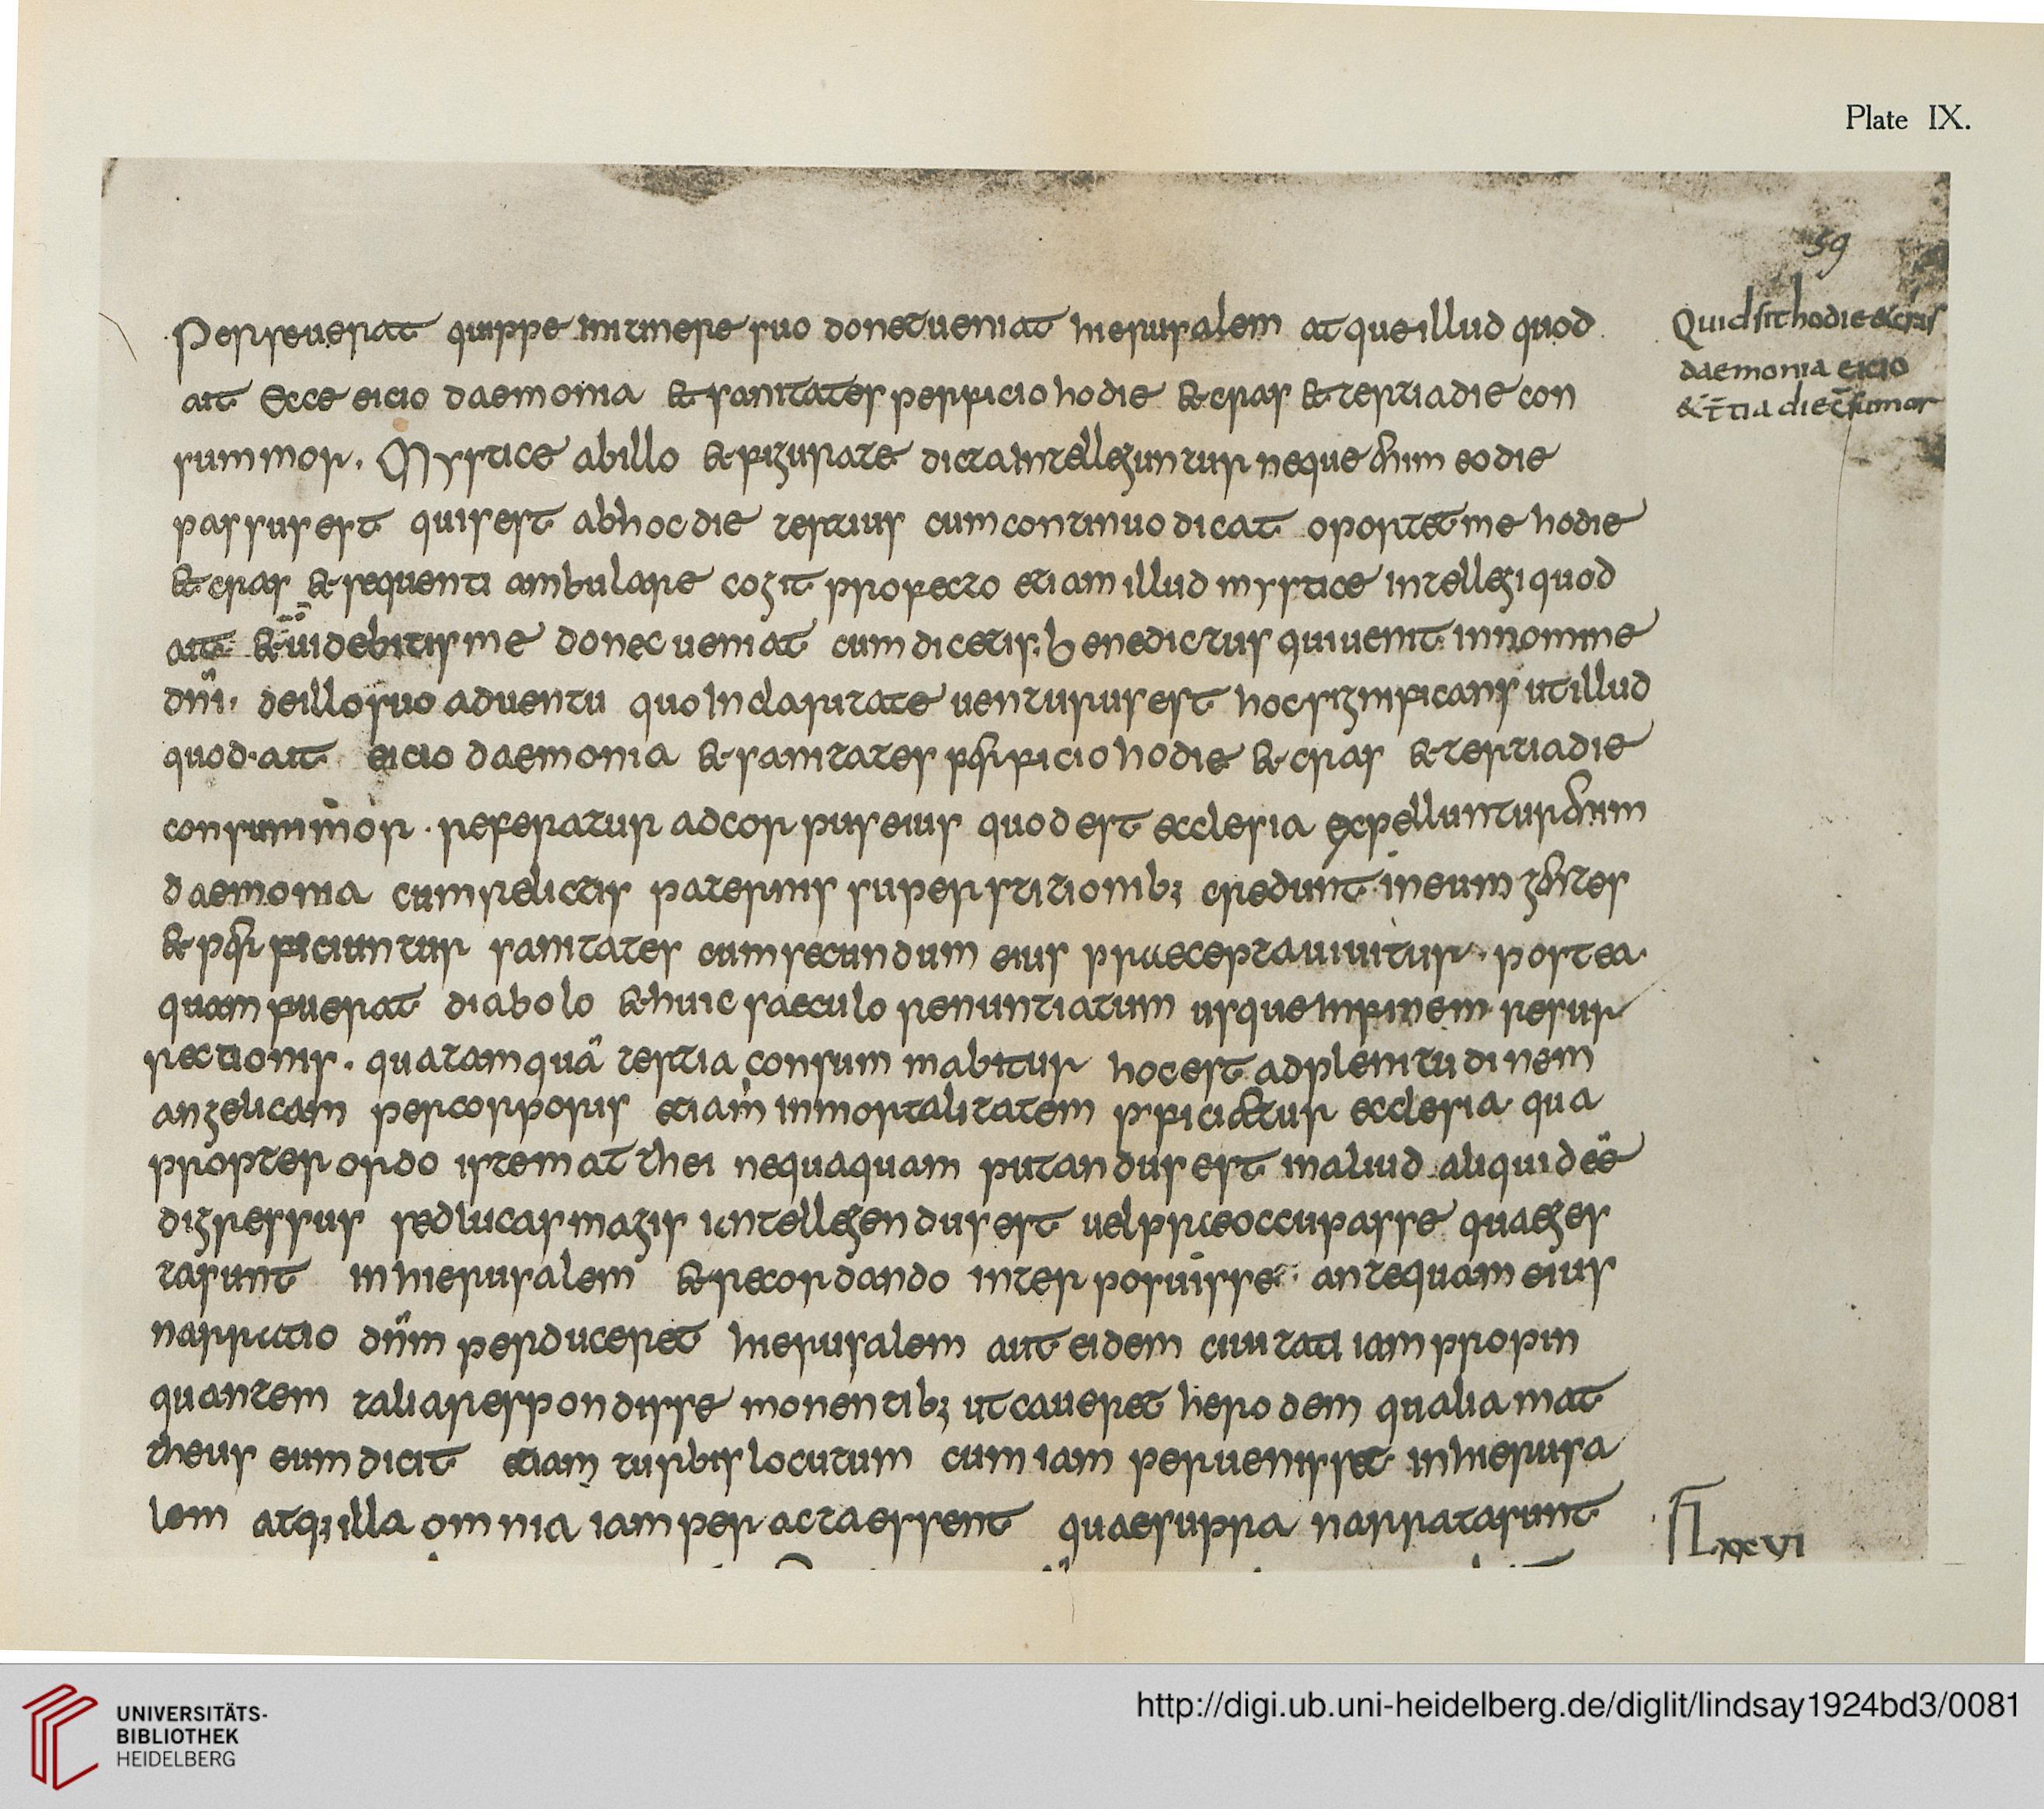 Plate IX.
59
Perseuerat quippe in itinere suo donec ueniat hierusalem atque illud quod
ait Ecce eicio daemonia & sanitates perficio hodie & cras & tertia die con
summor. Mystice ab illo & figurate dicta intelleguntur neque enim eo die
passus est qui est ab hoc die tertius cum continuo dicat oportet me hodie
& cras & sequenti ambulare cogit profecto etiam illud mystice intellegi quod
ait & uidebitis me donec ueniat cum dicetis. benedictus qui uenit in nomine
dñi. de illo suo aduentu quo in claritate uenturus est hoc significans ut illud
quod. ait eicio daemonia & sanitates perficio hodie & cras & tertia die
consummor. referatur ad corpus eius quod est ecclesia expelluntur enim
daemonia cum relictis paternis superstitionib; credunt in eum gentes
& perficiuntur sanitates cum secundum eius praecepta uiuitur. postea
quam fuerat diabolo & huic saeculo renuntiatum usque in finem resur
rectionis. qua tamquā tertia consummabitur hoc est ad plenitudinem
angelicam per corporis etiam inmortalitatem perficietur ecclesia qua
propter ordo iste matthei nequaquam putandus est in aliud aliquid eē
digressus sed lucas magis intellegendus est uel praeoccupasse quae ges
ta sunt in hierusalem & recordando interposuisse. antequam eius
narratio dñm perduceret hierusalem aut eidem ciuitati iam propin
quantem talia respondisse monentib; ut caueret herodem qualia mat
theus eum dicit etiam turbis locutum cum iam peruenisset in hierusa
lem atq; illa omnia iam per acta essent quae supra narrata sunt
Quid sit hodie & cras
daemonia eicio
& t̄tia die c̄sumor
LXXVI
UNIVERSITÄTS-
BIBLIOTHEK
HEIDELBERG
http://digi.ub.uni-heidelberg.de/diglit/lindsay1924bd3/0081